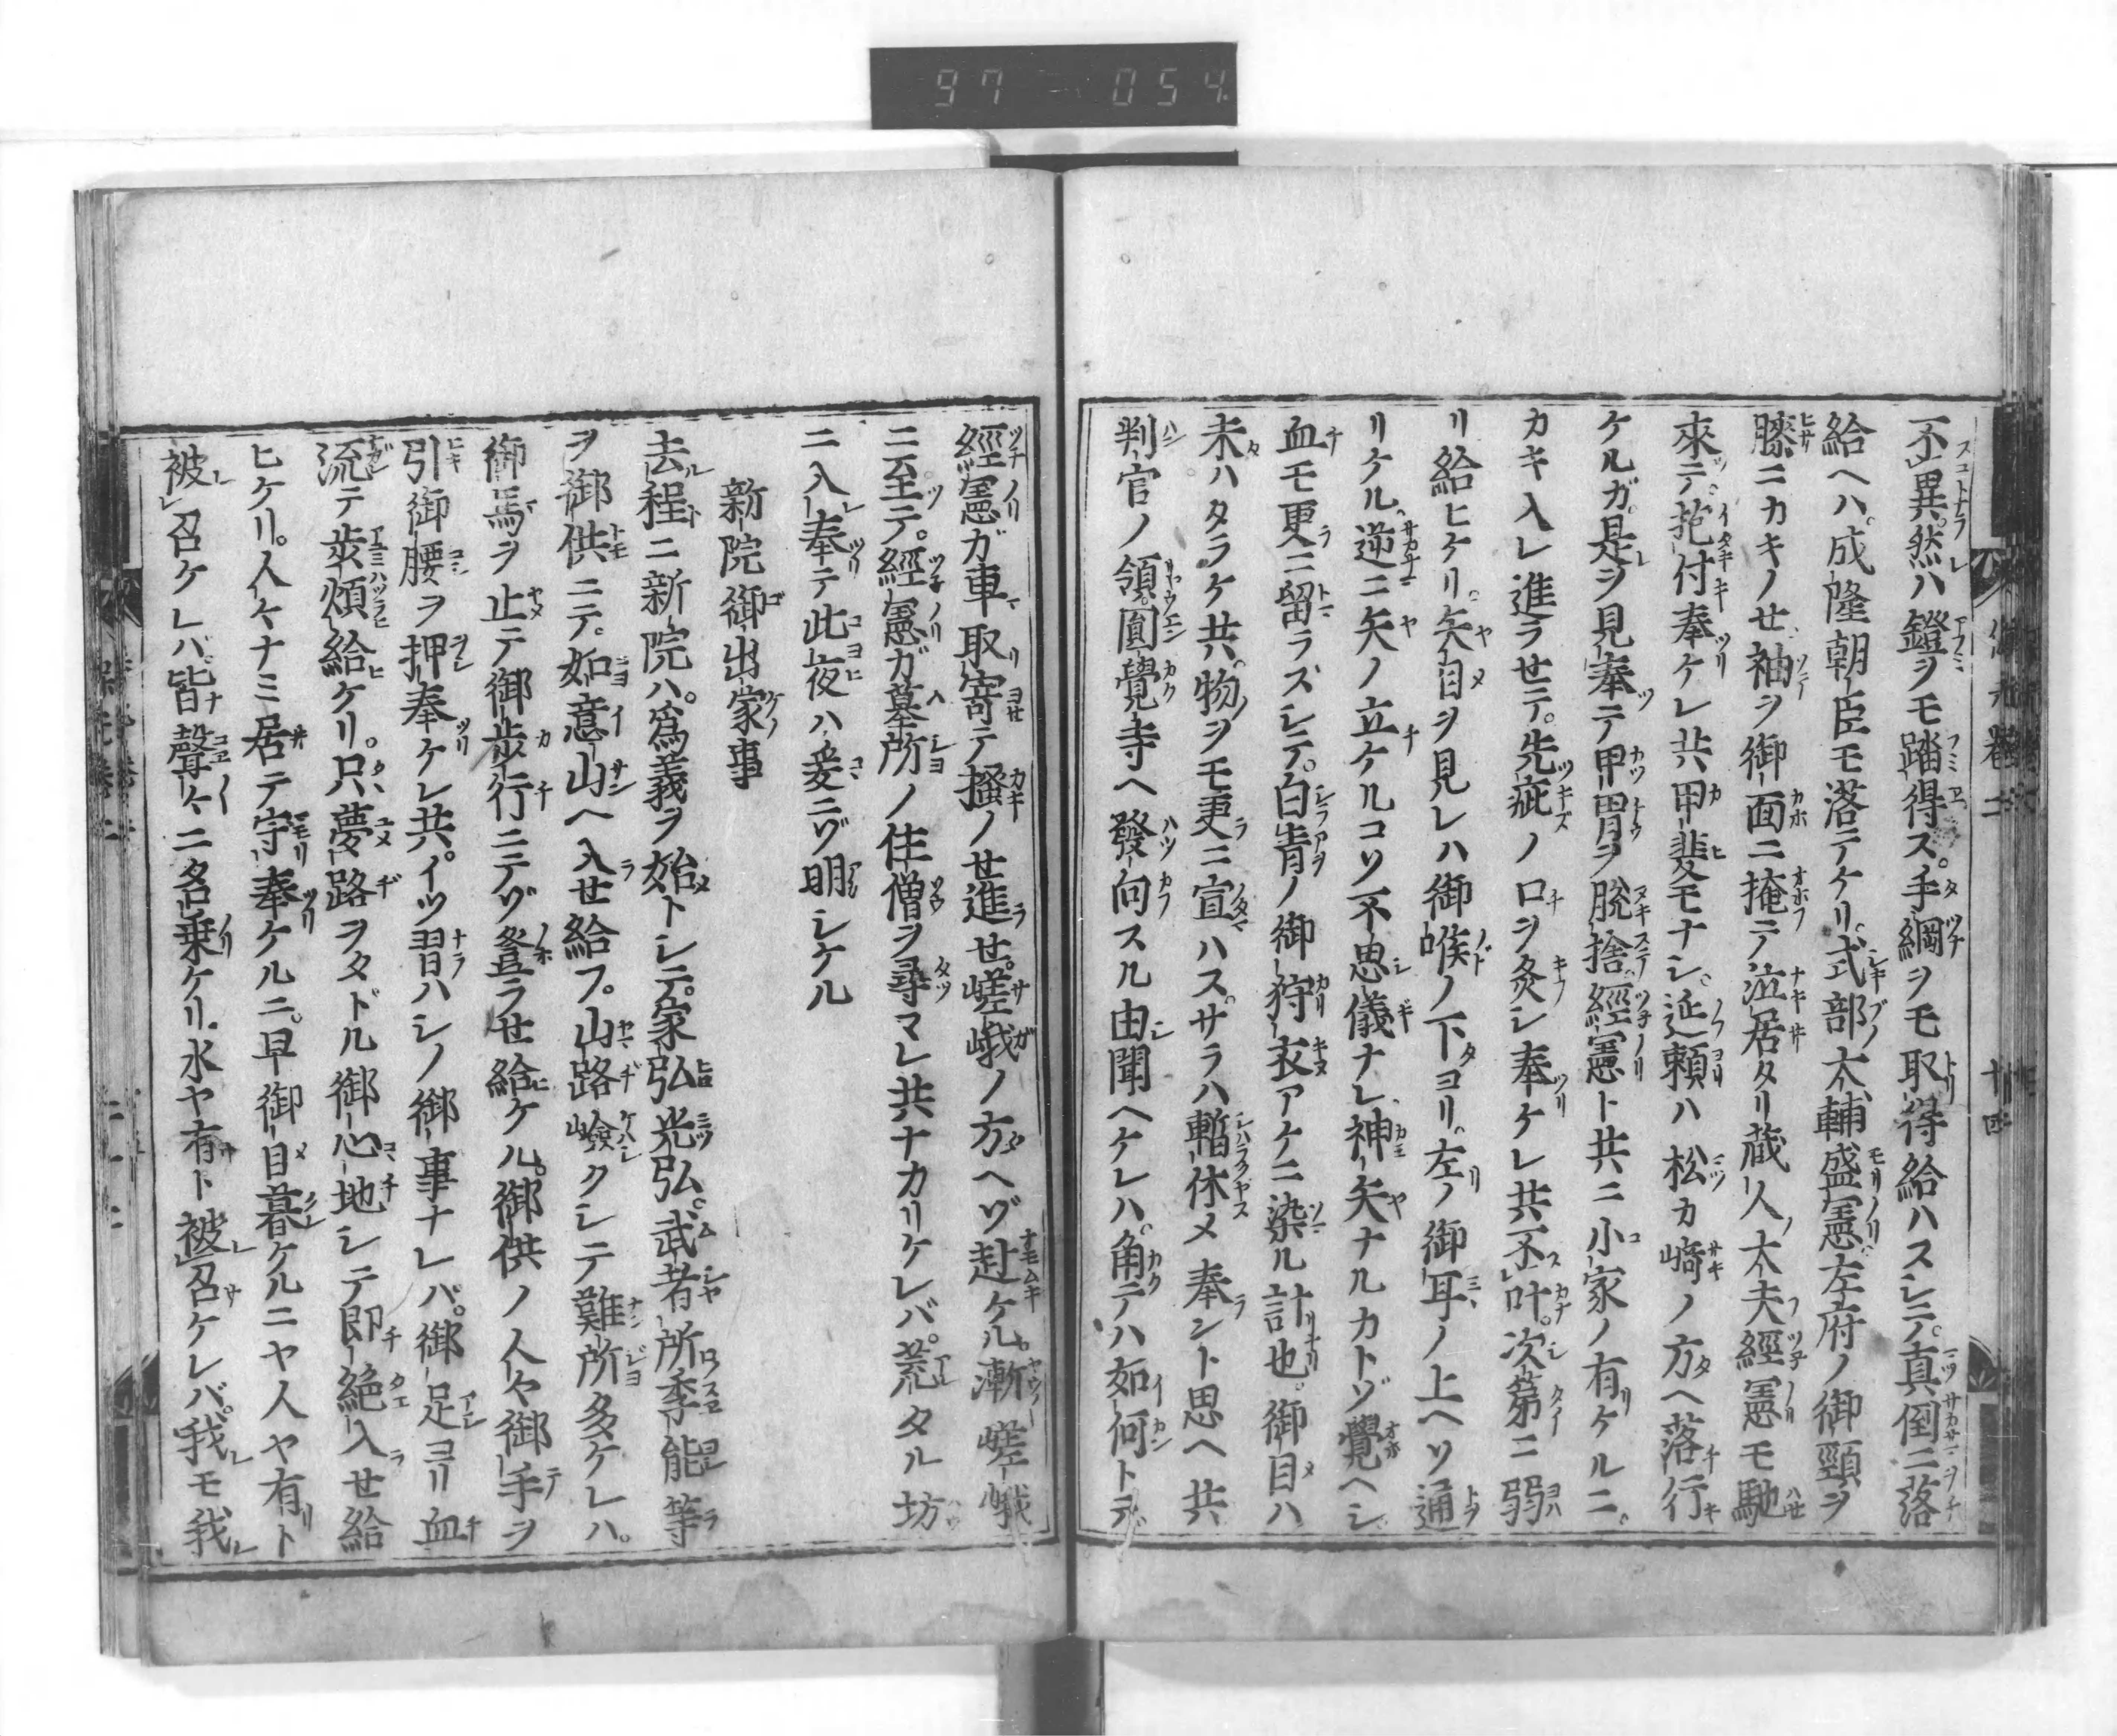 97 054
不異。然ハ鐙ヲモ踏得ス。手綱ヲモ取得給ハスシテ。真倒ニ落
給ヘハ。成隆朝臣モ落テケリ。式部太輔盛憲左府ノ御頸ヲ
膝ニカキノせ袖ヲ御面ニ掩テ泣居タリ蔵人太夫經憲モ馳
來テ。抱付奉ケレ共甲斐モナシ。延頼ハ松カ﨑ノ方ヘ落行
ケルガ。是ヲ見奉テ甲冑ヲ脱捨。經憲ト共ニ小家ノ有ケルニ。
カキ入レ進ラせテ。先疵ノ口ヲ灸シ奉ケレ共不叶。次第ニ弱
リ給ヒケリ。矢目ヲ見レハ御喉ノ下ヨリ。左ノ御耳ノ上ヘソ通
リケル。逆ニ矢ノ立ケルコソ不思儀ナレ神矢ナルカトゾ覺ヘシ
血モ更ニ留ラズシテ。白青ノ御狩衣アケニ染ル計也。御目ハ
未ハタラケ共。物ヲモ更ニ宣ハス。サラハ暫休メ奉ラント思ヘ共
判官ノ領。圓覺寺ヘ發向スル由聞ヘケレハ。角テハ如何トテ
經憲ガ車取寄テ掻ノせ進せ。嵯峨ノ方ヘゾ赴ケル。漸嵯峨
ニ至テ。經憲ガ墓所ノ住僧ヲ尋マレ共ナカリケレバ。荒タル坊
ニ入奉テ此夜ハ爰ニゾ明シケル
新院御出家事
去程ニ新院ハ。爲義ヲ始トシテ。家弘光弘。武者所季能等
ヲ御供ニテ。如意山ヘ入せ給フ。山路嶮クシテ難所多ケレハ。
御馬ヲ止テ御歩行ニテゾ登ラせ給ケル。御供ノ人々御手ヲ
引御腰ヲ押奉ケレ共。イツ習ハシノ御事ナレバ。御足ヨリ血
流テ歩煩給ケリ。只夢路ヲタドル御心地シテ即絶入せ給
ヒケリ。人々ナミ居テ守奉ケルニ。早御目暮ケルニヤ人ヤ有ト
被召ケレバ。皆聲々ニ名乗ケリ。水ヤ有ト被召ケレバ。我モ我